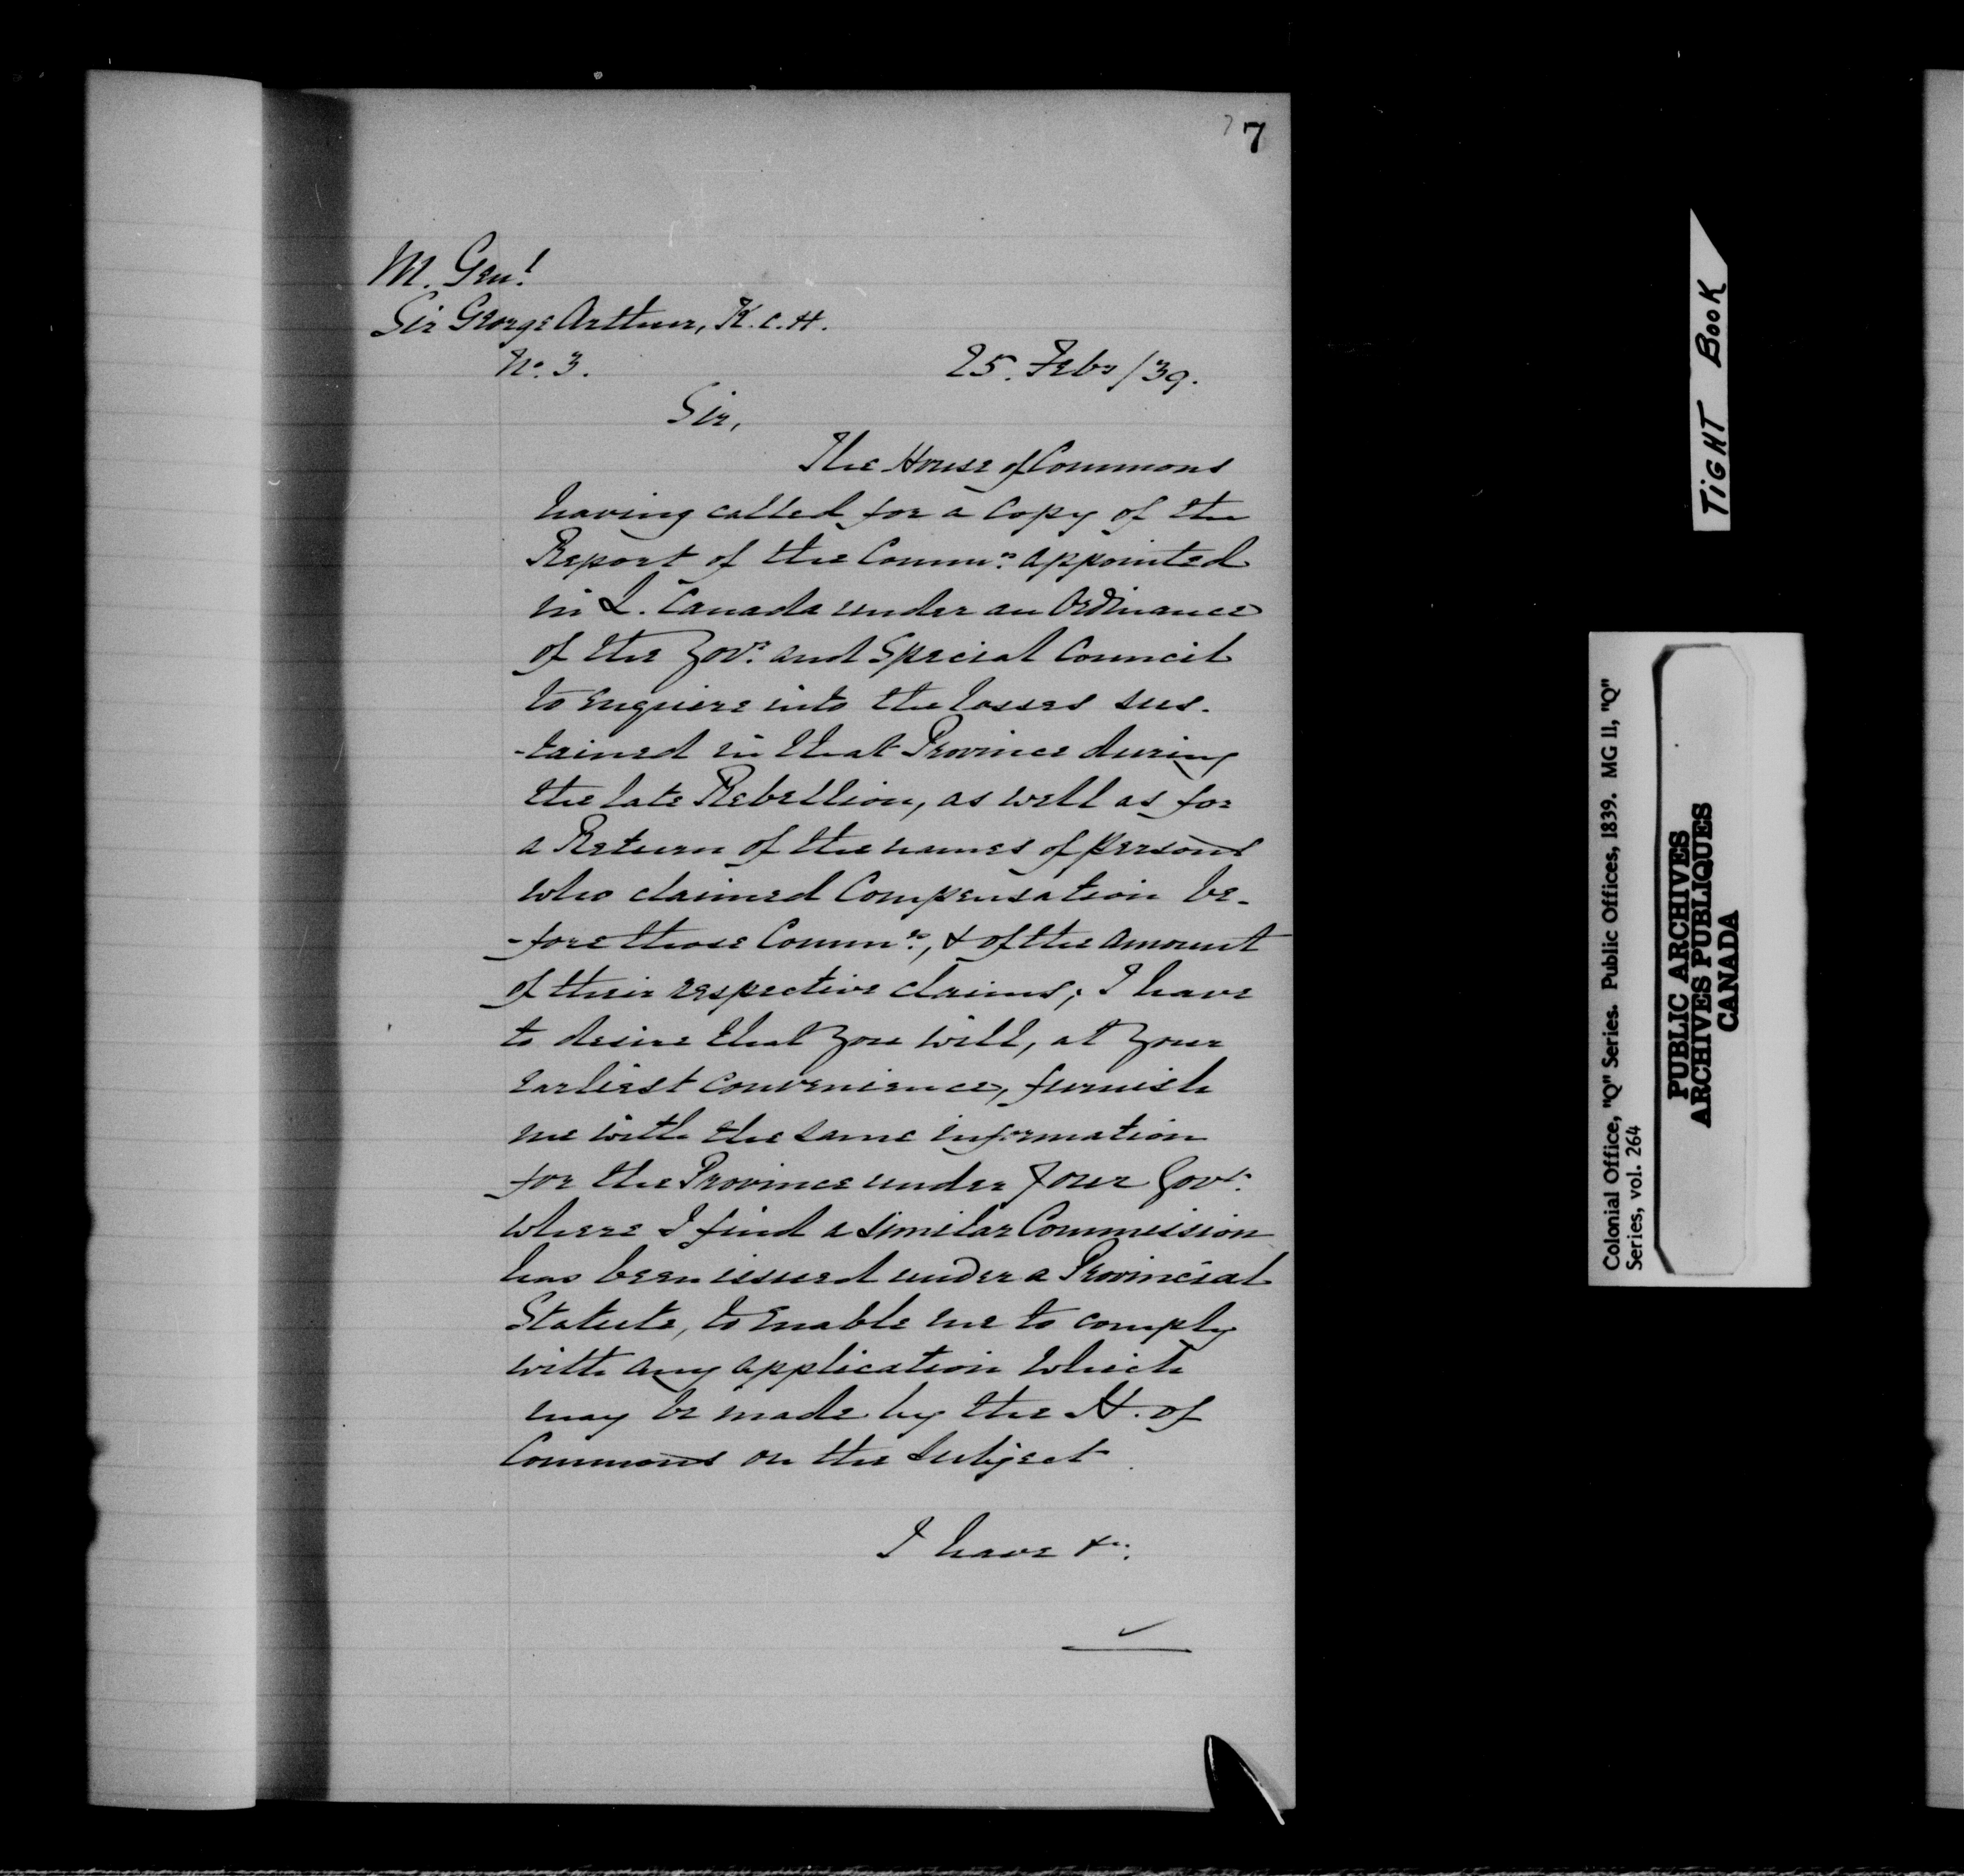 7 7
M. Genl
Sir George Arthur, K.C.H.
No. 3. 25. Feby/39.
Sir,
The House of Commons
having called for a Copy of the
Report of the Commrs appointed
in L. Canada under an Ordinance
of the Govr. and Special Council
to enquire into the losses sus-
-tained in that Province during
the late Rebellion, as well as for
a Return of the names of persons
who claimed Compensation be-
-fore those Commrs, & of the amount
of their respective claims; I have
to desire that you will, at your
earliest convenience, furnish
me with the same information
for the Province under your Govt.
where I find a similar Commission
has been issued under a Provincial
Statute, to enable me to comply
with any application which
may be made by the H. of
Commons on the subject.
I have &c.
TIGHT BOOK
Colonial Office, "Q" Series. Public Offices, 1839. MG 11, "Q"
Series, vol. 264
PUBLIC ARCHIVES
ARCHIVES PUBLIQUES
CANADA